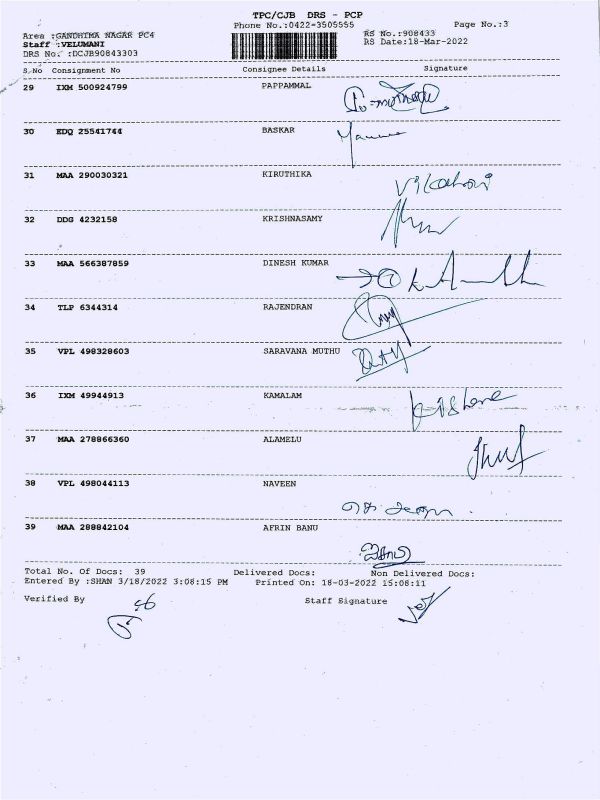 TPC/CJB DRS - PCP
Phone No.:0422-3505555 Page No.:3
Area :GANDHIMA NAGAR PC4 RS No.:908433
Staff :VELUMANI RS Date:18-Mar-2022
DRS No. :DCJB90843303
S.No Consignment No Consignee Details Signature
29 IXM 500924799 PAPPAMMAL
30 EDQ 25541744 BASKAR
31 MAA 290030321 KIRUTHIKA
32 DDG 4232158 KRISHNASAMY
33 MAA 566387859 DINESH KUMAR
34 TLP 6344314 RAJENDRAN
35 VPL 498328603 SARAVANA MUTHU
36 IXM 49944913 KAMALAM
37 MAA 278866360 ALAMELU
38 VPL 498044113 NAVEEN
39 MAA 288842104 AFRIN BANU
Total No. Of Docs: 39 Delivered Docs: Non Delivered Docs:
Entered By :SHAN 3/18/2022 3:08:15 PM Printed On: 18-03-2022 15:08:11
Verified By Staff Signature